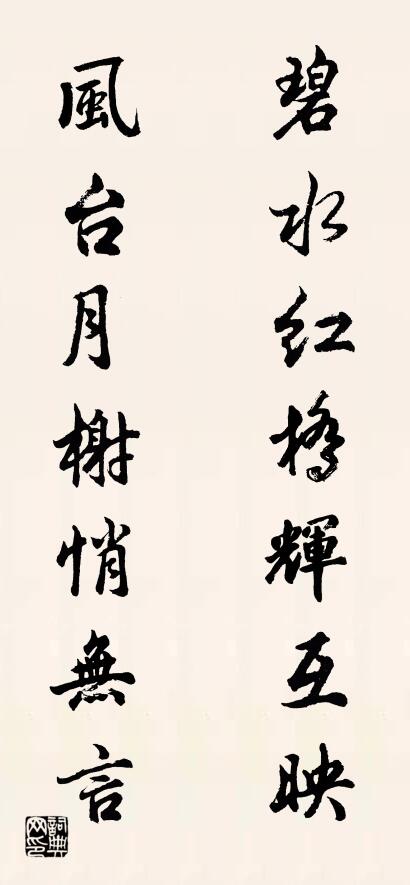 碧水红橋輝互映
風台月榭悄無言
詞典网印